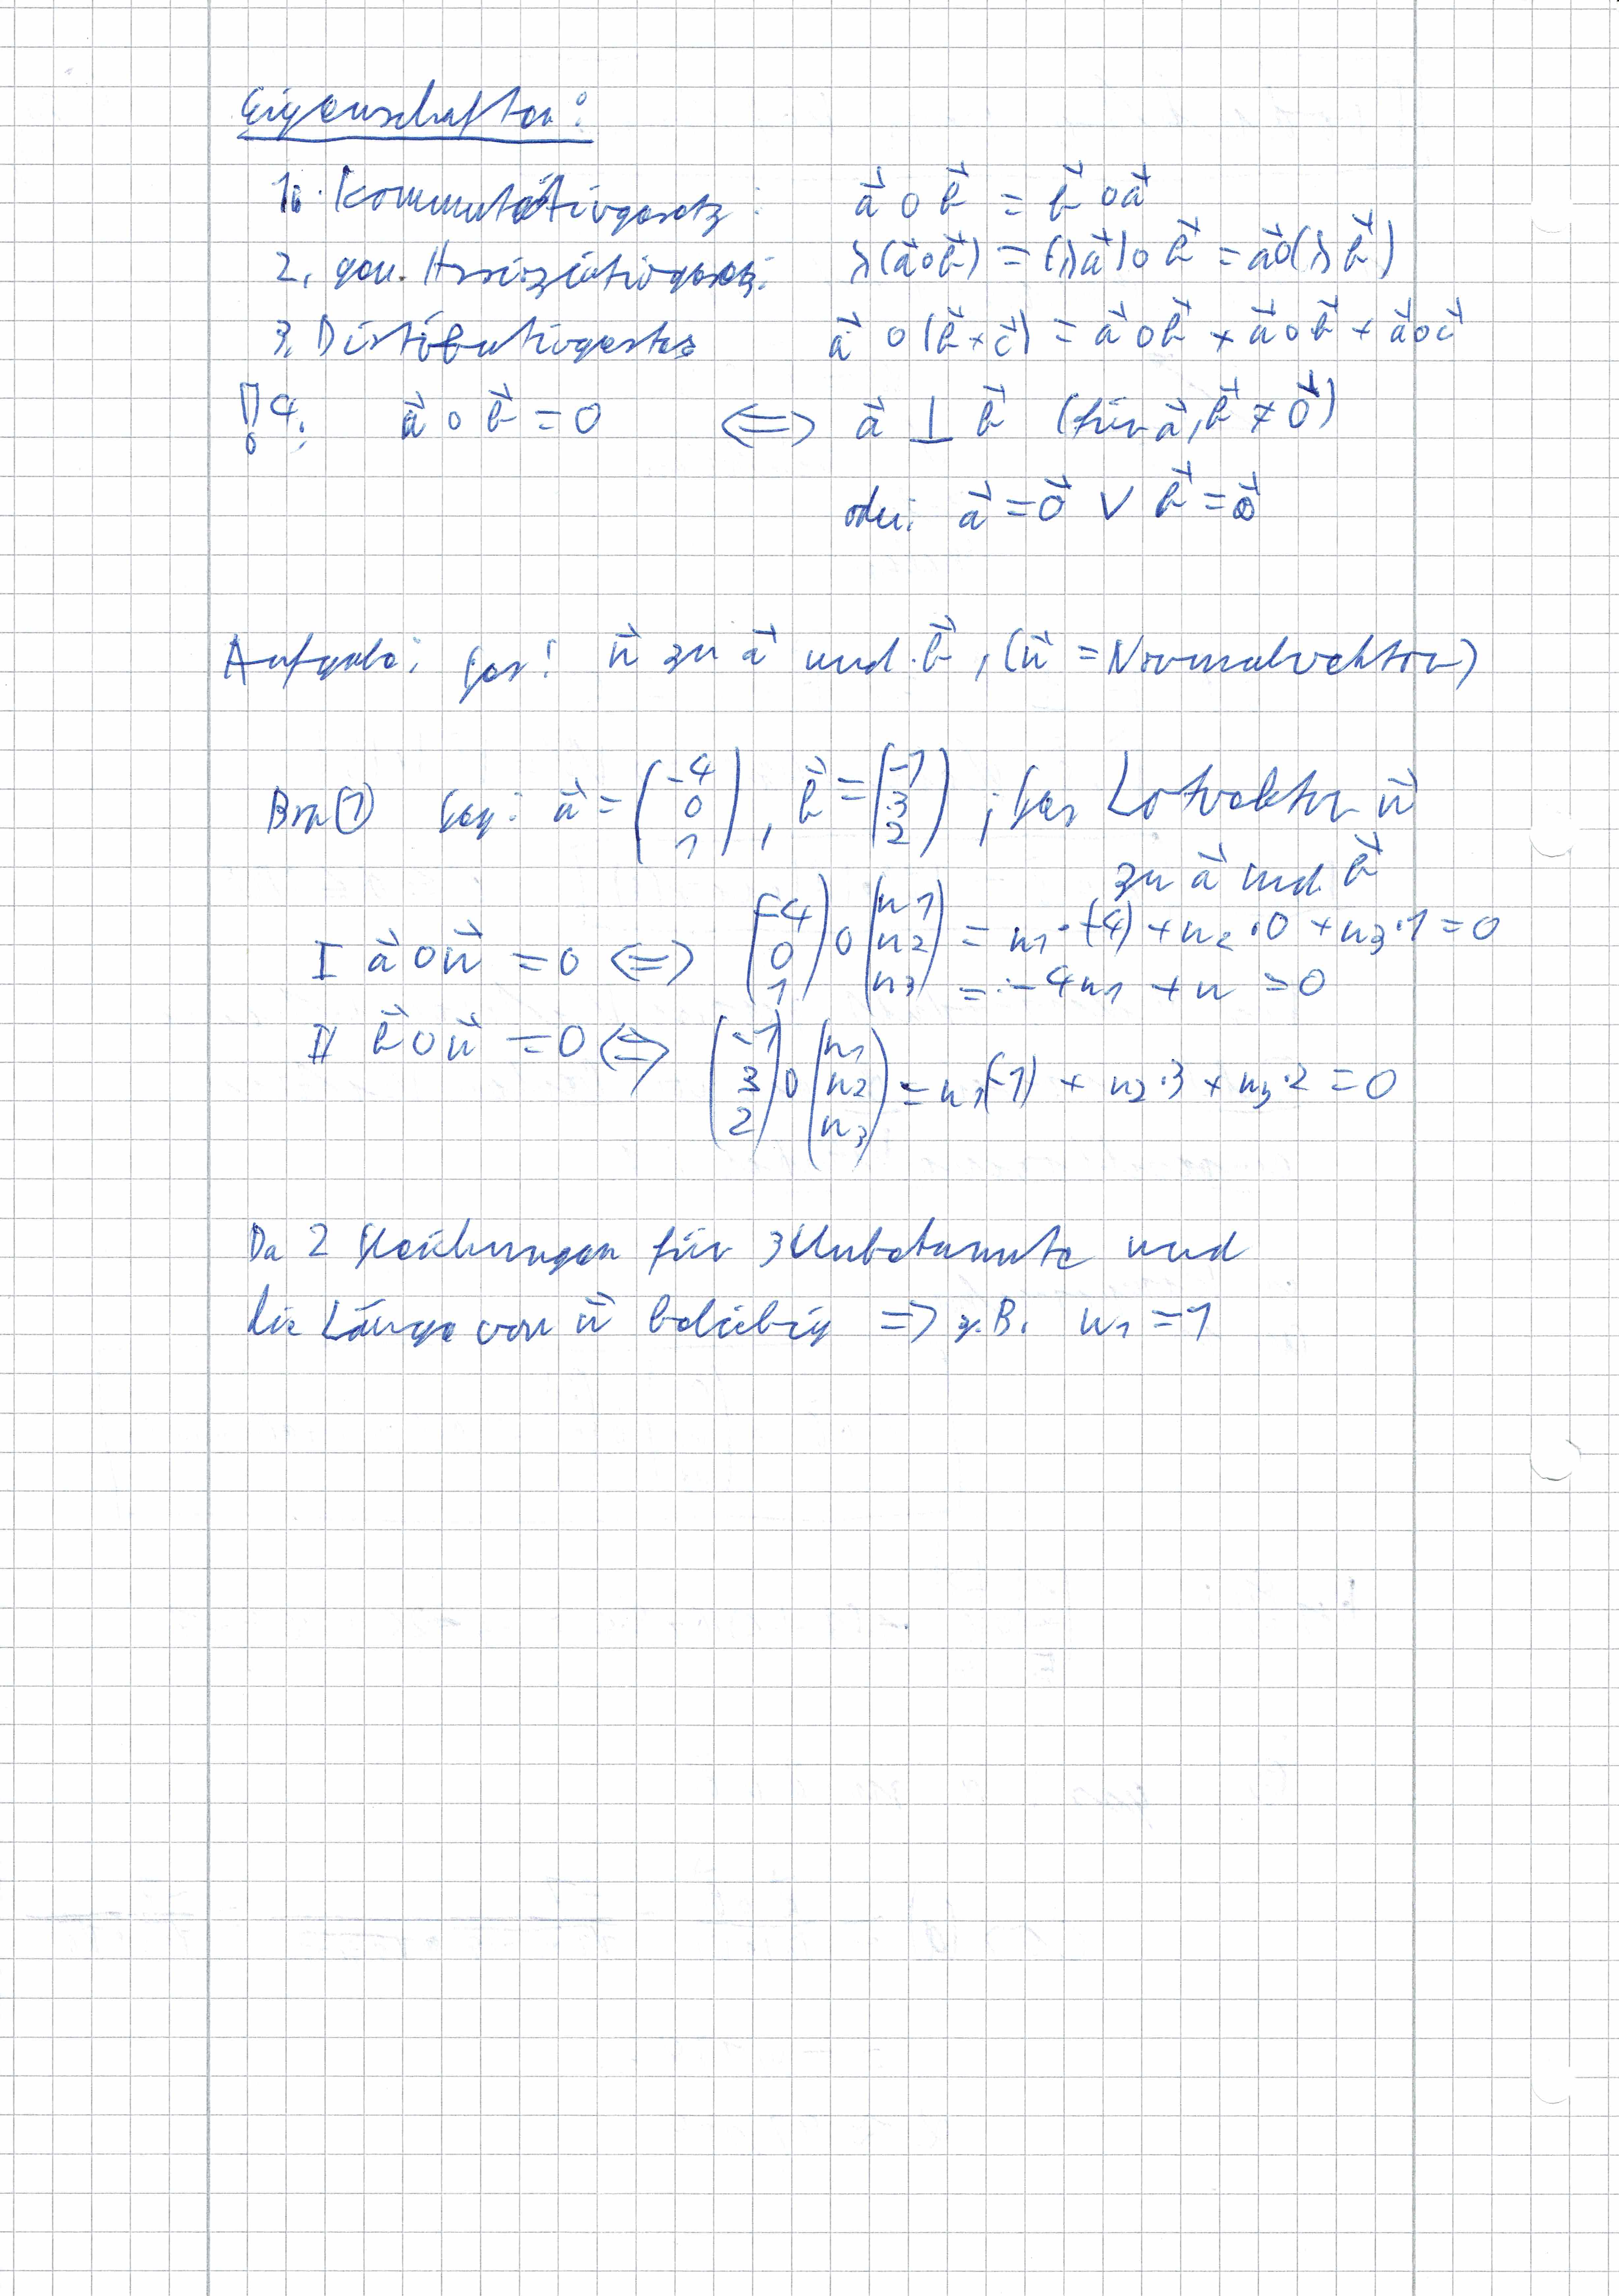 Eigenschaften:
1. Kommutativgesetz: a⃗ ∘ b⃗ = b⃗ ∘ a⃗
2. gem. Assoziativgesetz: λ(a⃗∘b⃗) = (λa⃗)∘b⃗ = a⃗∘(λb⃗)
3. Distributivgesetz a⃗ ∘ (b⃗+c⃗) = a⃗∘b⃗ + a⃗∘b⃗ + a⃗∘c⃗
! 4. a⃗ ∘ b⃗ = 0 ⟺ a⃗ ⊥ b⃗ (für a⃗, b⃗ ≠ 0⃗)
oder: a⃗ = 0⃗ ∨ b⃗ = 0⃗
Aufgabe: ges: n⃗ zu a⃗ und b⃗, (n⃗ = Normalvektor)
Bsp ① geg: a⃗ = (-4 0 1), b⃗ = (-1 3 2); ges Lotvektor n⃗
zu a⃗ und b⃗
I a⃗∘n⃗ = 0 ⟺ (-4 0 1) ∘ (n1 n2 n3) = n1·(-4) + n2·0 + n3·1 = 0
= -4n1 + n = 0
II b⃗∘n⃗ = 0 ⟺ (-1 3 2) ∘ (n1 n2 n3) = n1(-1) + n2·3 + n3·2 = 0
Da 2 Gleichungen für 3 Unbekannte und
die Länge von n⃗ beliebig => z.B. n1 = 1